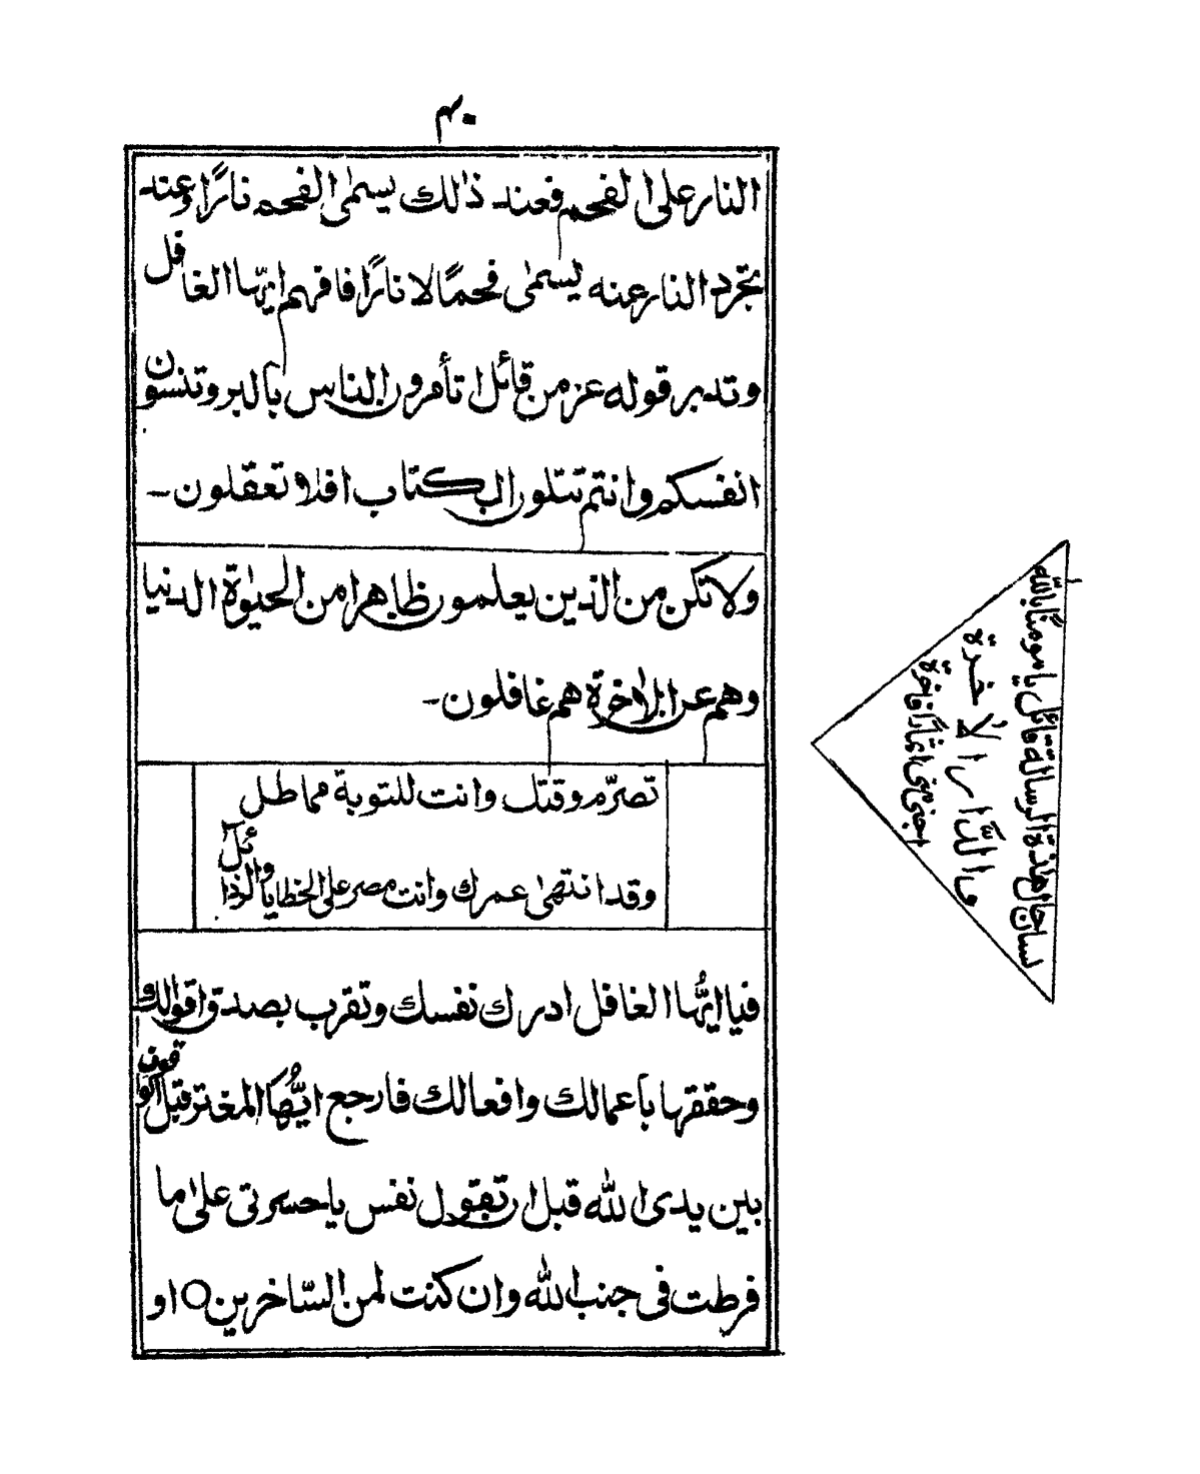 ۴۰
النار على الفحم فعند ذٰلك يسمٰى الفحم نارًا وعند
تجرّد النار عنه ليسمٰى فحمًا لا نارًا فافهم ايّها الغافل
وتدبر قوله عز من قائل اتأمرون الناس بالبر وتنسون
انفسكم وانتم تتلون الكتاب افلا تعقلون ـ
ولا تكن من الذين يعلمون ظاهرا من الحيٰوة الدنيا
وهم عن الاٰخرة هم غافلون ـ
تصرّم وقتك وانت للتوبة مماطل
وقد انتهٰى عمرك وانت مصر على الخطايا والرذائل
فيا ايُّها الغافل ادرك نفسك وتقرب بصدق اقوالك و
وحققها بأعمالك وافعالك فارجع ايُّها المغتر قبل الوقوف
بين يدى الله قبل ان تقول نفس يا حسرتى علٰى ما
فرطت فى جنب الله وان كنت لمن السّاخرين O او
لسان حال هٰذة الرسالة قائل يا مومنًا بالله
والدَّار الاٰخرة
اجتنى منى اثمارًا فاخرة